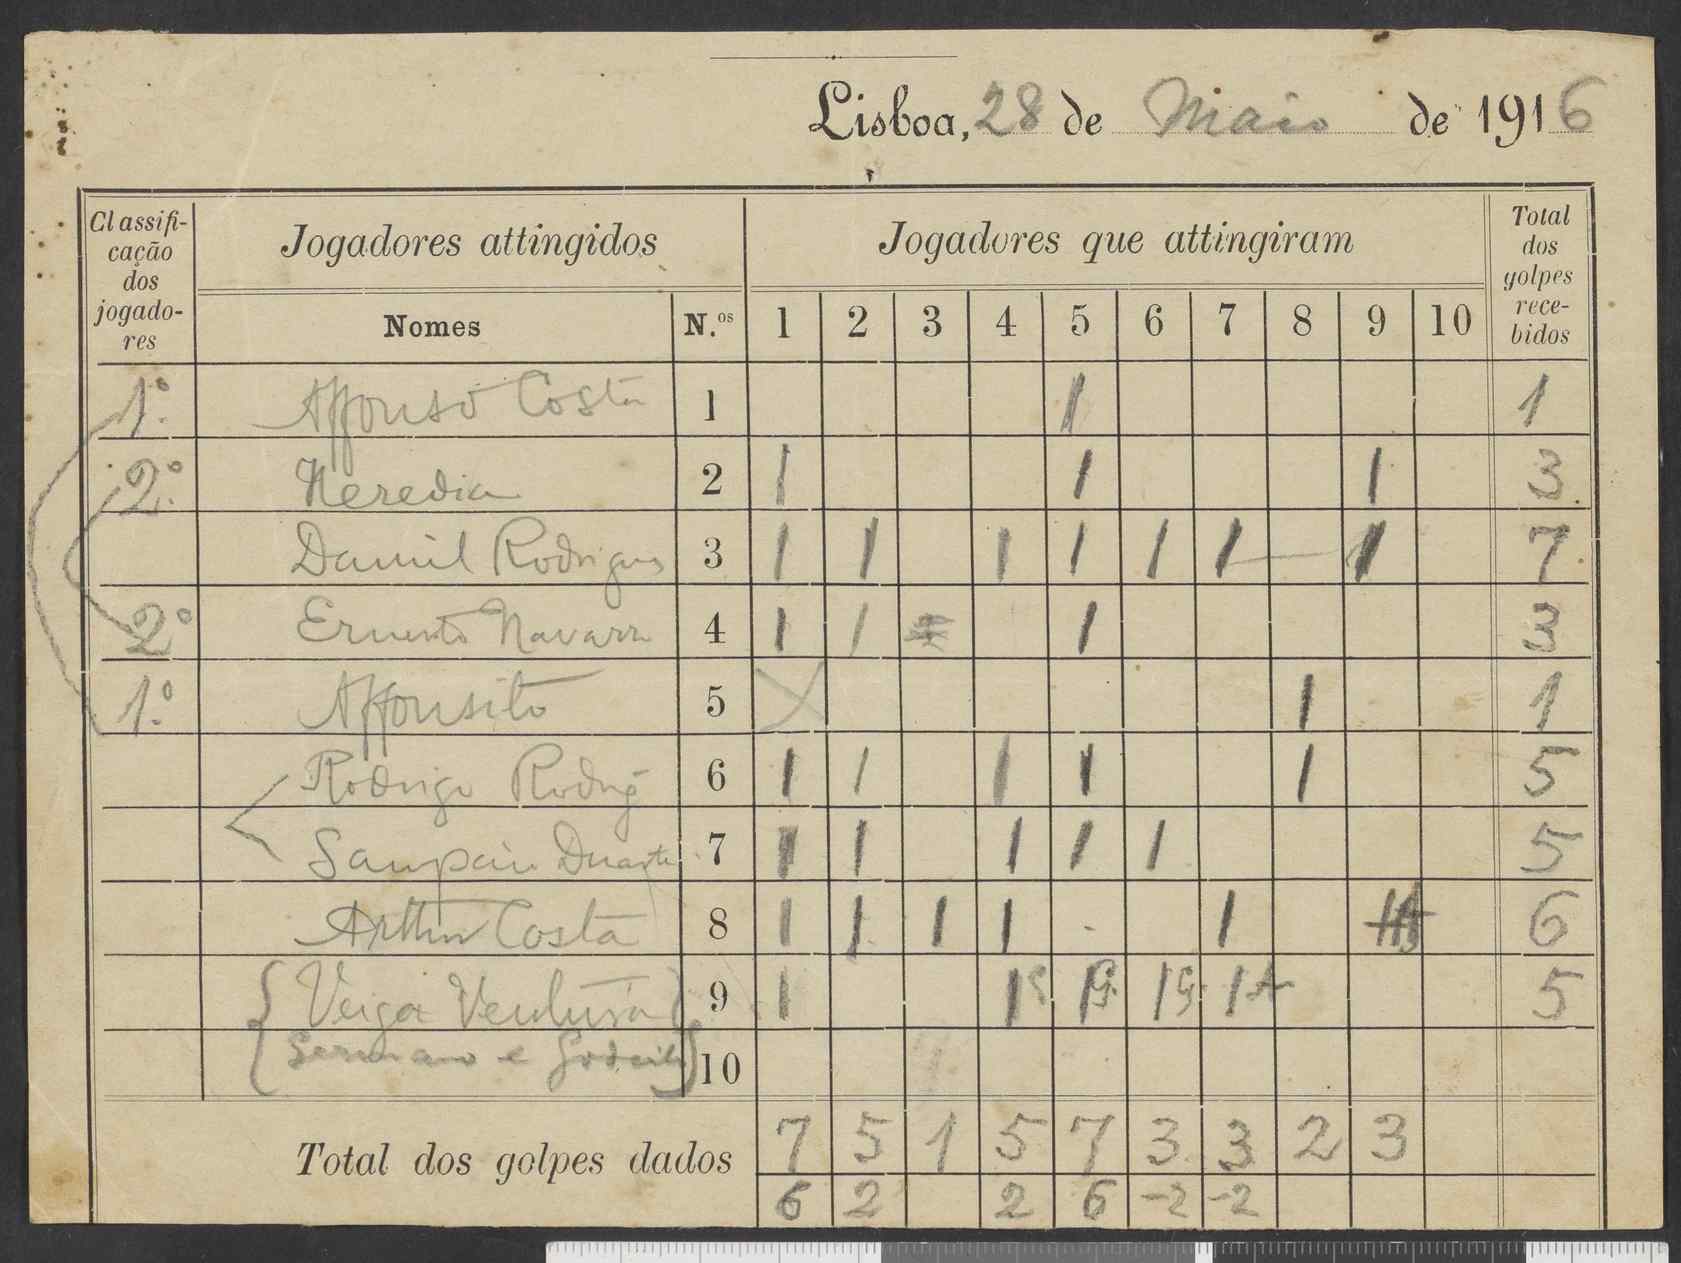 Lisboa, 28 de Maio de 1916
Classifi-
cação
dos
jogado-
res
Jogadores attingidos
Jogadores que attingiram
Total
dos
golpes
rece-
bidos
Nomes N.os 1 2 3 4 5 6 7 8 9 10
1º Affonso Costa 1 1 1
2º Heredia 2 1 1 1 3
Daniel Rodrigues 3 1 1 1 1 1 1 1 7
2º Ernesto Navarro 4 1 1 1 3
1º Affonsito 5 X 1 1
Rodrigo Rodrig 6 1 1 1 1 1 5
Sampaio Duarte 7 1 1 1 1 1 5
Arthur Costa 8 1 1 1 1 1 6
Veiga Ventura 9 1 1G 1G 1G 1A 5
Germano e 10
Total dos golpes dados 7 5 1 5 7 3 3 2 3
6 2 2 6 -2 -2